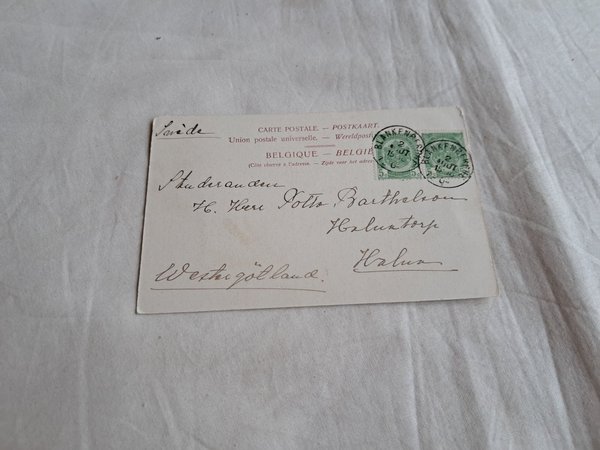 Suède
CARTE POSTALE. — POSTKAART.
Union postale universelle. — Wereldpost
BELGIQUE — BELGIË
(Côté réservé à l'adresse. — Zijde voor het adres
BLANKENB
2
AOUT
BLANKENB
2
AOUT
Studeranden
H. Herr Otto Barthelson
Haluntorp
Halun
Westergötland.